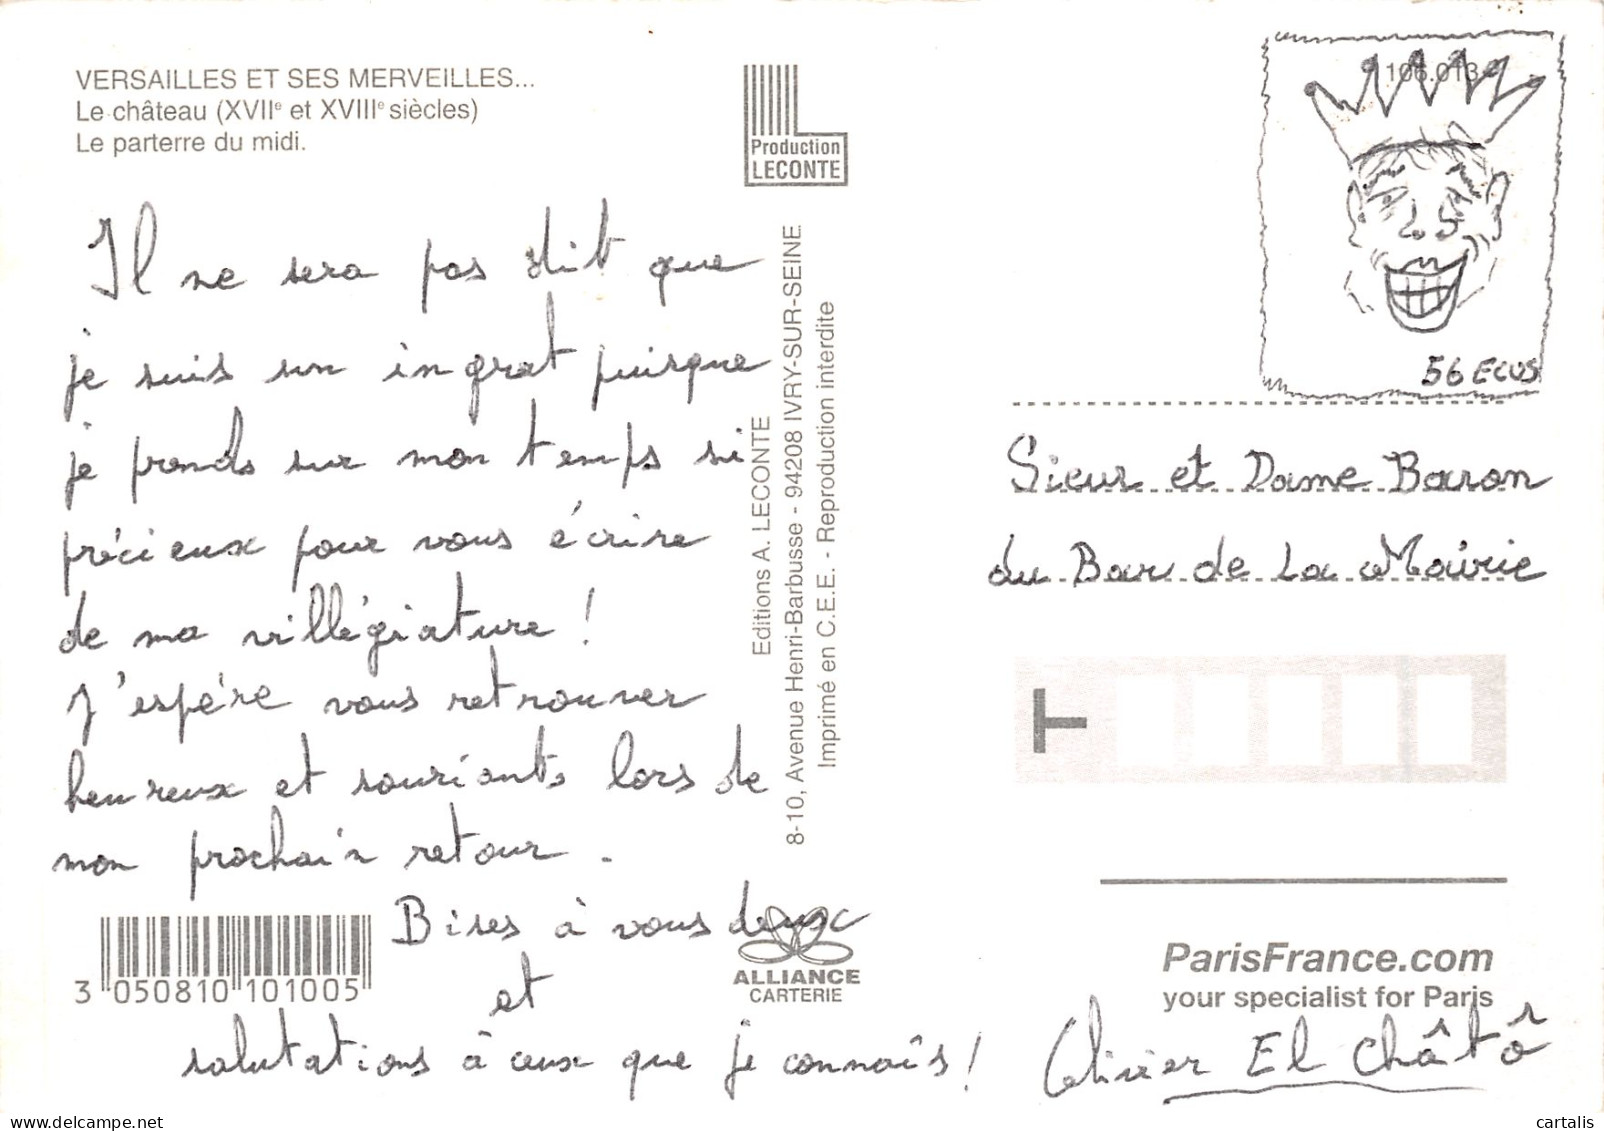 VERSAILLES ET SES MERVEILLES...
Le château (XVIIe et XVIIIe siècles)
Le parterre du midi.
Production
LECONTE
106.013
56 ECUS
Il ne sera pas dit que
je suis un ingrat puisque
je prends sur mon temps si
précieux pour vous écrire
de ma villégiature !
J'espére vous retrouver
heureux et souriants lors de
mon prochain retour.
Bises à vous deux
et
salutations à ceux que je connaîs !
Olivier El Châtô
Editions A. LECONTE
8-10, Avenue Henri-Barbusse - 94208 IVRY-SUR-SEINE
Imprimé en C.E.E. - Reproduction interdite
Sieur et Dame Baron
du Bar de La Mairie
3 050810 101005
ALLIANCE
CARTERIE
ParisFrance.com
your specialist for Paris
cartalis
www.delcampe.net